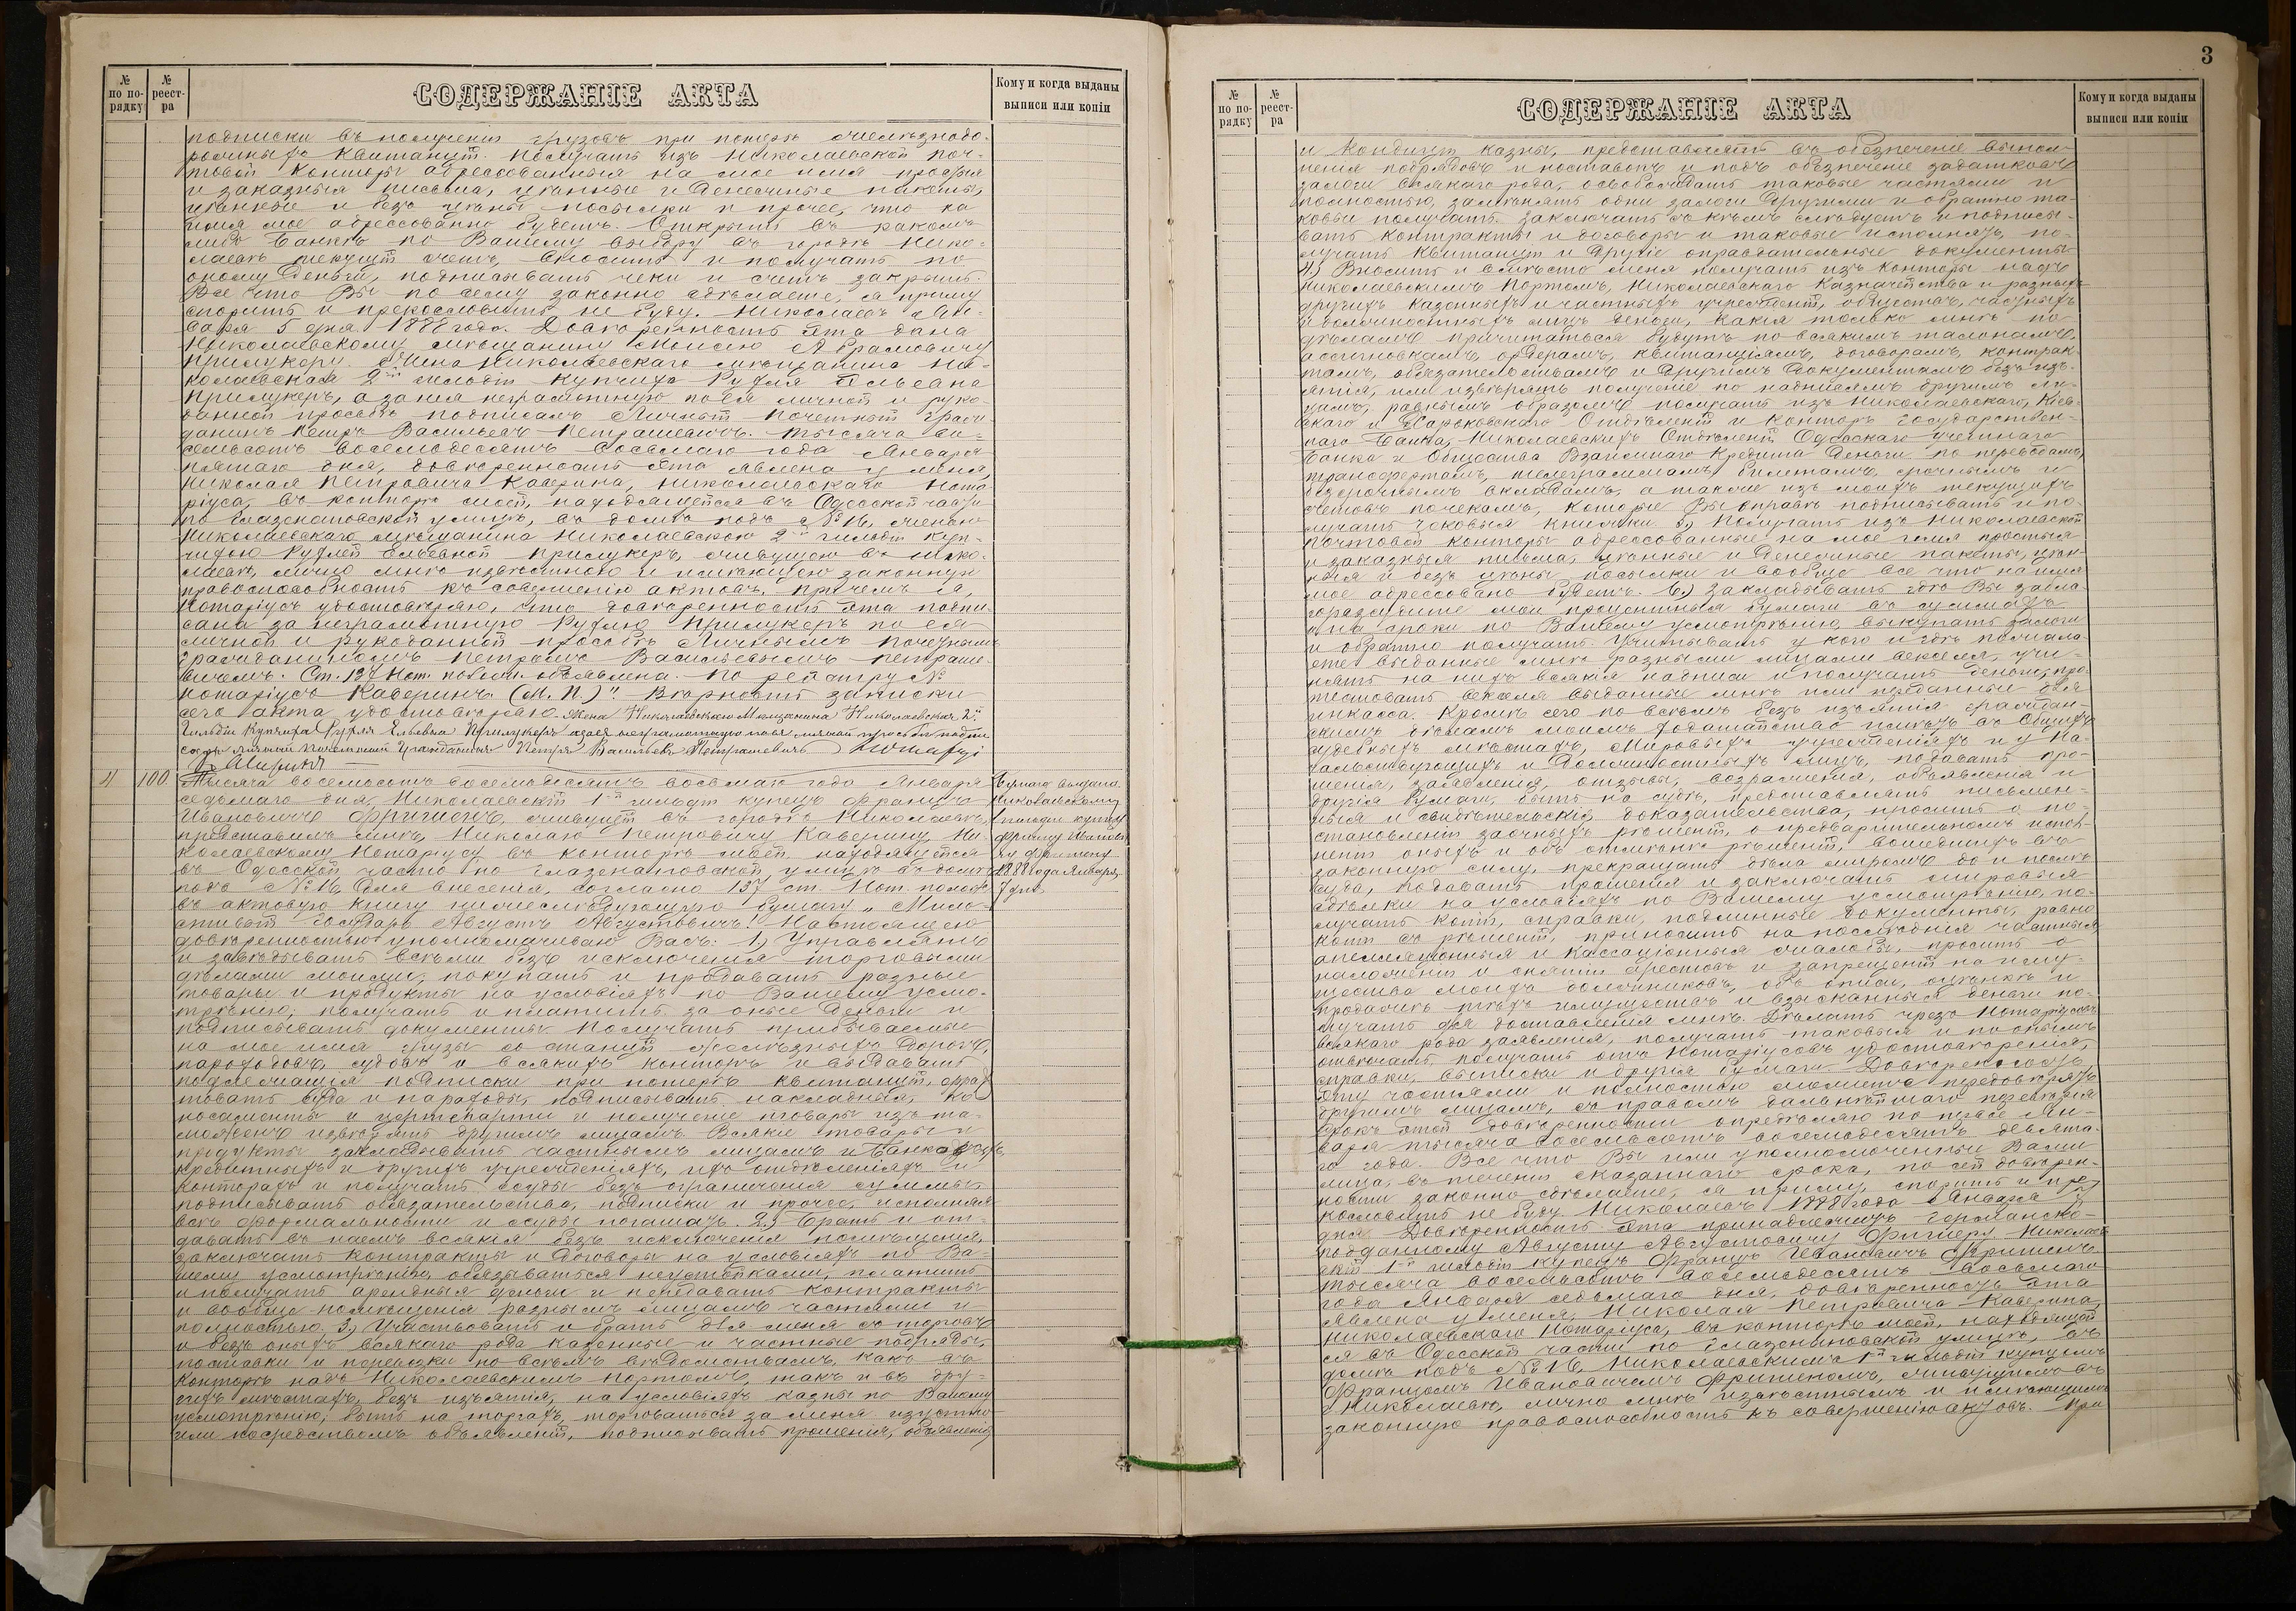 № по по-рядку
№ реест-ра
СОДЕРЖАНІЕ АКТА
Кому и когда выданы выписи или копіи
подписки въ полученіи грузовъ при потерѣ желѣзнодо-
рожныхъ квитанцій. Получать изъ Николаевской поч-
товой Конторы адресованныя на мое имя простыя
и заказныя письма, цѣнные и денежные пакеты,
цѣнныя и безъ цѣны посылки и прочее, что на
имя мое адресованно будетъ. Открыть въ какомъ
либо Банкѣ по Вашему выбору въ городѣ Нико-
лаевѣ текущій счетъ, вносить и получать по
оному деньги, подписывать чеки и счетъ закрыть.
Все что Вы по сему законно сдѣлаете, я приму
спорить и прекословить не буду. Николаевъ Ян-
варя 5 дня 1888 года. Довѣренность эта дана
Николаевскому мѣщанину Моисею Абрамовичу
Прилукеру. Жена Николаевскаго мѣщанина Ни-
колаевская 2й гильдіи купчиха Рухля Ельевна
Прилукеръ, а за нея неграмотную по ея личной и руко-
данной просьбѣ подписалъ Личный почетный граж-
данинъ Петръ Васильевъ Петрашевичъ. Тысяча во-
семьсотъ восемьдесятъ восьмаго года Января
пятаго дня, довѣренность эта явлена у меня,
Николая Петровича Каверина, Николаевскаго Нота-
ріуса, въ конторѣ моей, находящейся въ Одесской части
по Глазенаповской улицѣ, въ домѣ подъ № 16, женою
Николаевскаго мѣщанина Николаевскою 2й гильдіи куп-
чихою Рухлей Ельевной Прилукеръ, живущею въ Нико-
лаевѣ, лично мнѣ извѣстною и имѣющею законную
правоспособность къ совершенію актовъ. Причемъ я,
Нотаріусъ удостовѣряю, что довѣренность эта подпи-
сана за неграмотную Рухлю Прилукеръ по ея
личной и рукоданной просьбѣ Личнымъ Почетнымъ
Гражданиномъ Петромъ Васильевымъ Петраше-
вичемъ. Ст. 127 Нот. полож. объявлена. По реестру №
Нотаріусъ Каверинъ (М. П.)". Вѣрность записки
сего акта удостовѣряю. Жена Николаевскаго Мѣщанина Николаевская 2й
Гильдіи Купчиха Рухля Ельевна Прилукеръ а за нея неграмотную по ея личной просьбѣ подпи-
салъ личный почетный гражданинъ Петръ Васильевъ Петрашевичъ Нотаріусъ
Каверинъ
4 100 Тысяча восемьсотъ восемьдесятъ восьмаго года Января
седьмаго дня, Николаевскій 1й гильдіи купецъ Францъ
Ивановичъ Фришенъ, живущій въ городѣ Николаевѣ,
представилъ мнѣ, Николаю Петровичу Каверину, Ни-
колаевскому Нотаріусу, въ конторѣ моей, находящейся
въ Одесской части по Глазенаповской улицѣ въ домѣ
подъ № 16, для внесенія, согласно 137 ст. Нот. полож.
въ актовую книгу нижеслѣдующую бумагу: „Мило-
стивый Государь Августъ Августовичъ! Настоящею
довѣренностью уполномачиваю Васъ: 1) Управлять
и завѣдывать всѣми безъ исключенія торговыми
дѣлами моими, покупать и продавать разные
товары и продукты на условіяхъ по Вашему усмо-
трѣнію, получать и платить за оные деньги и
подписывать документы. Получать прибываемые
на мое имя грузы со станцій желѣзныхъ дорогъ,
пароходовъ, судовъ и всякихъ конторъ и выдавать
подлежащія подписки при потерѣ квитанцій, фрах-
товать суда и пароходы, подписывать накладныя, ко-
носаменты и цертепартіи и полученіе товары изъ та-
моженъ извѣрять другимъ лицамъ. Всякіе товары и
продукты закладывать частнымъ лицамъ и банкахъ,
кредитныхъ и другихъ учрежденіяхъ, ихъ отдѣленіяхъ и
конторахъ и получать ссуды безъ ограниченія суммы,
подписывать обязательства, подписки и прочее, исполняя
всѣ формальности и ссуды погашать. 2) Брать и от-
давать въ наемъ всякія безъ исключенія помѣщенія,
заключать контракты и договоры на условіяхъ по Ва-
шему усмотрѣнію, обязываться неустойками, платить
и получать арендныя деньги и передавать контракты
и вообще помѣщенія разнымъ лицамъ частями и
полностью. 3) Участвовать и брать для меня съ торговъ
и безъ оныхъ всякаго рода казенные и частные подряды,
поставки и перевозки по всѣмъ вѣдомствамъ, какъ въ
Конторѣ надъ Николаевскимъ портомъ, такъ и въ дру-
гихъ мѣстахъ, безъ изъятія, на условіяхъ казны по Вашему
усмотрѣнію, быть на торгахъ, торговаться за меня изустно
или посредствомъ объявленій, подписывать прошенія, объявленія,
Бумага выдана
Николаевскому
1 гильдіи купцу
Францу Иванови-
чу Фришену
1888 года Января
7 дня.
3
№ по по-рядку
№ реест-ра
СОДЕРЖАНІЕ АКТА
Кому и когда выданы выписи или копіи
и кондиціи казны, представлять въ обезпеченіе выпол-
ненія подрядовъ и поставокъ и подъ обезпеченіе задатковъ
залоги всякаго рода, освобождать таковые частями и
полностью, замѣнять одни залоги другими и обратно та-
ковые получать. Заключать съ кѣмъ слѣдуетъ и подписы-
вать контракты и договоры и таковые исполнять, по-
лучать квитанціи и другіе оправдательные документы.
4) Вносить и вмѣсто меня получать изъ Конторы надъ
Николаевскимъ Портомъ, Николаевскаго Казначейства и разныхъ
другихъ казенныхъ и частныхъ учрежденій, обществъ, частныхъ
и должностныхъ лицъ деньги, какія только мнѣ по
дѣламъ причитаться будутъ по всякимъ талонамъ,
ассигновкамъ, ордерамъ, квитанціямъ, договорамъ, контрак-
тамъ, обязательствамъ и другимъ документамъ безъ изъ-
ятія, или извѣрять полученіе по надписямъ другимъ ли-
цамъ, равнымъ образомъ получать изъ Николаевскаго, Кіев-
скаго и Харьковскаго Отдѣленій и Конторъ Государствен-
наго Банка, Николаевскихъ Отдѣленій Одесскаго Учетнаго
Банка и Общества Взаимнаго Кредита деньги по переводамъ,
трансфертамъ, телеграммамъ, билетамъ, срочнымъ и
безсрочнымъ вкладамъ, а также изъ моихъ текущихъ
счетовъ по чекамъ, которые Вы вправѣ подписывать и по-
лучать чековыя книжки. 5) Получать изъ Николаевской
Почтовой конторы адресованные на мое имя простыя
и заказныя письма, цѣнные и денежные пакеты, цѣн-
ныя и безъ цѣны посылки и вообще все что на имя
мое адресовано будетъ. 6) Закладывать гдѣ Вы забла-
горазсудите мои процентныя бумаги въ суммахъ
и на сроки по Вашему усмотрѣнію, выкупать залоги
и обратно получать. Учитывать у кого и гдѣ пожела-
ете выданные мнѣ разными лицами векселя, учи-
нять на нихъ всякія надписи и получать деньги, про-
тестовать векселя выданные мнѣ или преданные для
инкасса. Кромѣ сего по всѣмъ безъ изъятія граждан-
скимъ дѣламъ моимъ ходатайство имѣть въ Общихъ
судебныхъ мѣстахъ, Мировыхъ учрежденіяхъ и у На-
чальствующихъ и Должностныхъ лицъ, подавать про-
шенія, заявленія, отзывы, возраженія, объявленія и
другія бумаги, быть на судѣ, представлять письмен-
ныя и свидѣтельскія доказательства, просить о по-
становленіи заочныхъ рѣшеній, о предварительномъ испол-
неніи оныхъ и объ отмѣнѣ рѣшеній, вошедшихъ въ
законную силу, прекращать дѣла миромъ до и послѣ
суда, подавать прошенія и заключать мировыя
сдѣлки на условіяхъ по Вашему усмотрѣнію, по-
лучать копіи, справки, подлинные документы, равно
копіи съ рѣшеній, приносить на послѣднія частныя,
апелляціонныя и кассаціонныя жалобы, просить о
наложеніи и снятіи арестовъ и запрещеній на иму-
щества моихъ должниковъ, объ описи, оцѣнкѣ и
продажѣ тѣхъ имуществъ и взысканныя деньги по-
лучать для доставленія мнѣ. Дѣлать чрезъ Нотаріусовъ
всякаго рода заявленія, получать таковыя и по онымъ
отвѣчать, получать отъ Нотаріусовъ удостовѣренія,
справки, выписки и другія бумаги. Довѣренность
эту частями и полностью можете передовѣрять
другимъ лицамъ, съ правомъ дальнѣйшаго передовѣрія
Срокъ этой довѣренности опредѣляю по первое Ян-
варя тысяча восемьсотъ восемьдесятъ девята-
го года. Все что Вы или уполномоченныя Вами
лица, въ теченіи сказаннаго срока, по сей довѣрен-
ности законно сдѣлаете, я приму, спорить и пре-
кословить не буду. Николаевъ 1888 года Января 7
дня. Довѣренность эта принадлежитъ Германско-
подданному Августу Августовичу Фришеру. Николаев-
скій 1й гильдіи купецъ Францъ Ивановичъ Фришенъ.
Тысяча восемьсотъ восемьдесятъ восьмаго
года Января седьмаго дня, довѣренность эта
явлена у меня, Николая Петровича Каверина,
Николаевскаго Нотаріуса, въ конторѣ моей, находящей-
ся въ Одесской части по Глазенаповской улицѣ, въ
домѣ подъ № 16, Николаевскимъ 1й гильдіи купцомъ
Францомъ Ивановичемъ Фришеномъ, живущимъ въ
Николаевѣ, лично мнѣ извѣстнымъ и имѣющимъ
законную правоспособность къ совершенію актовъ. При